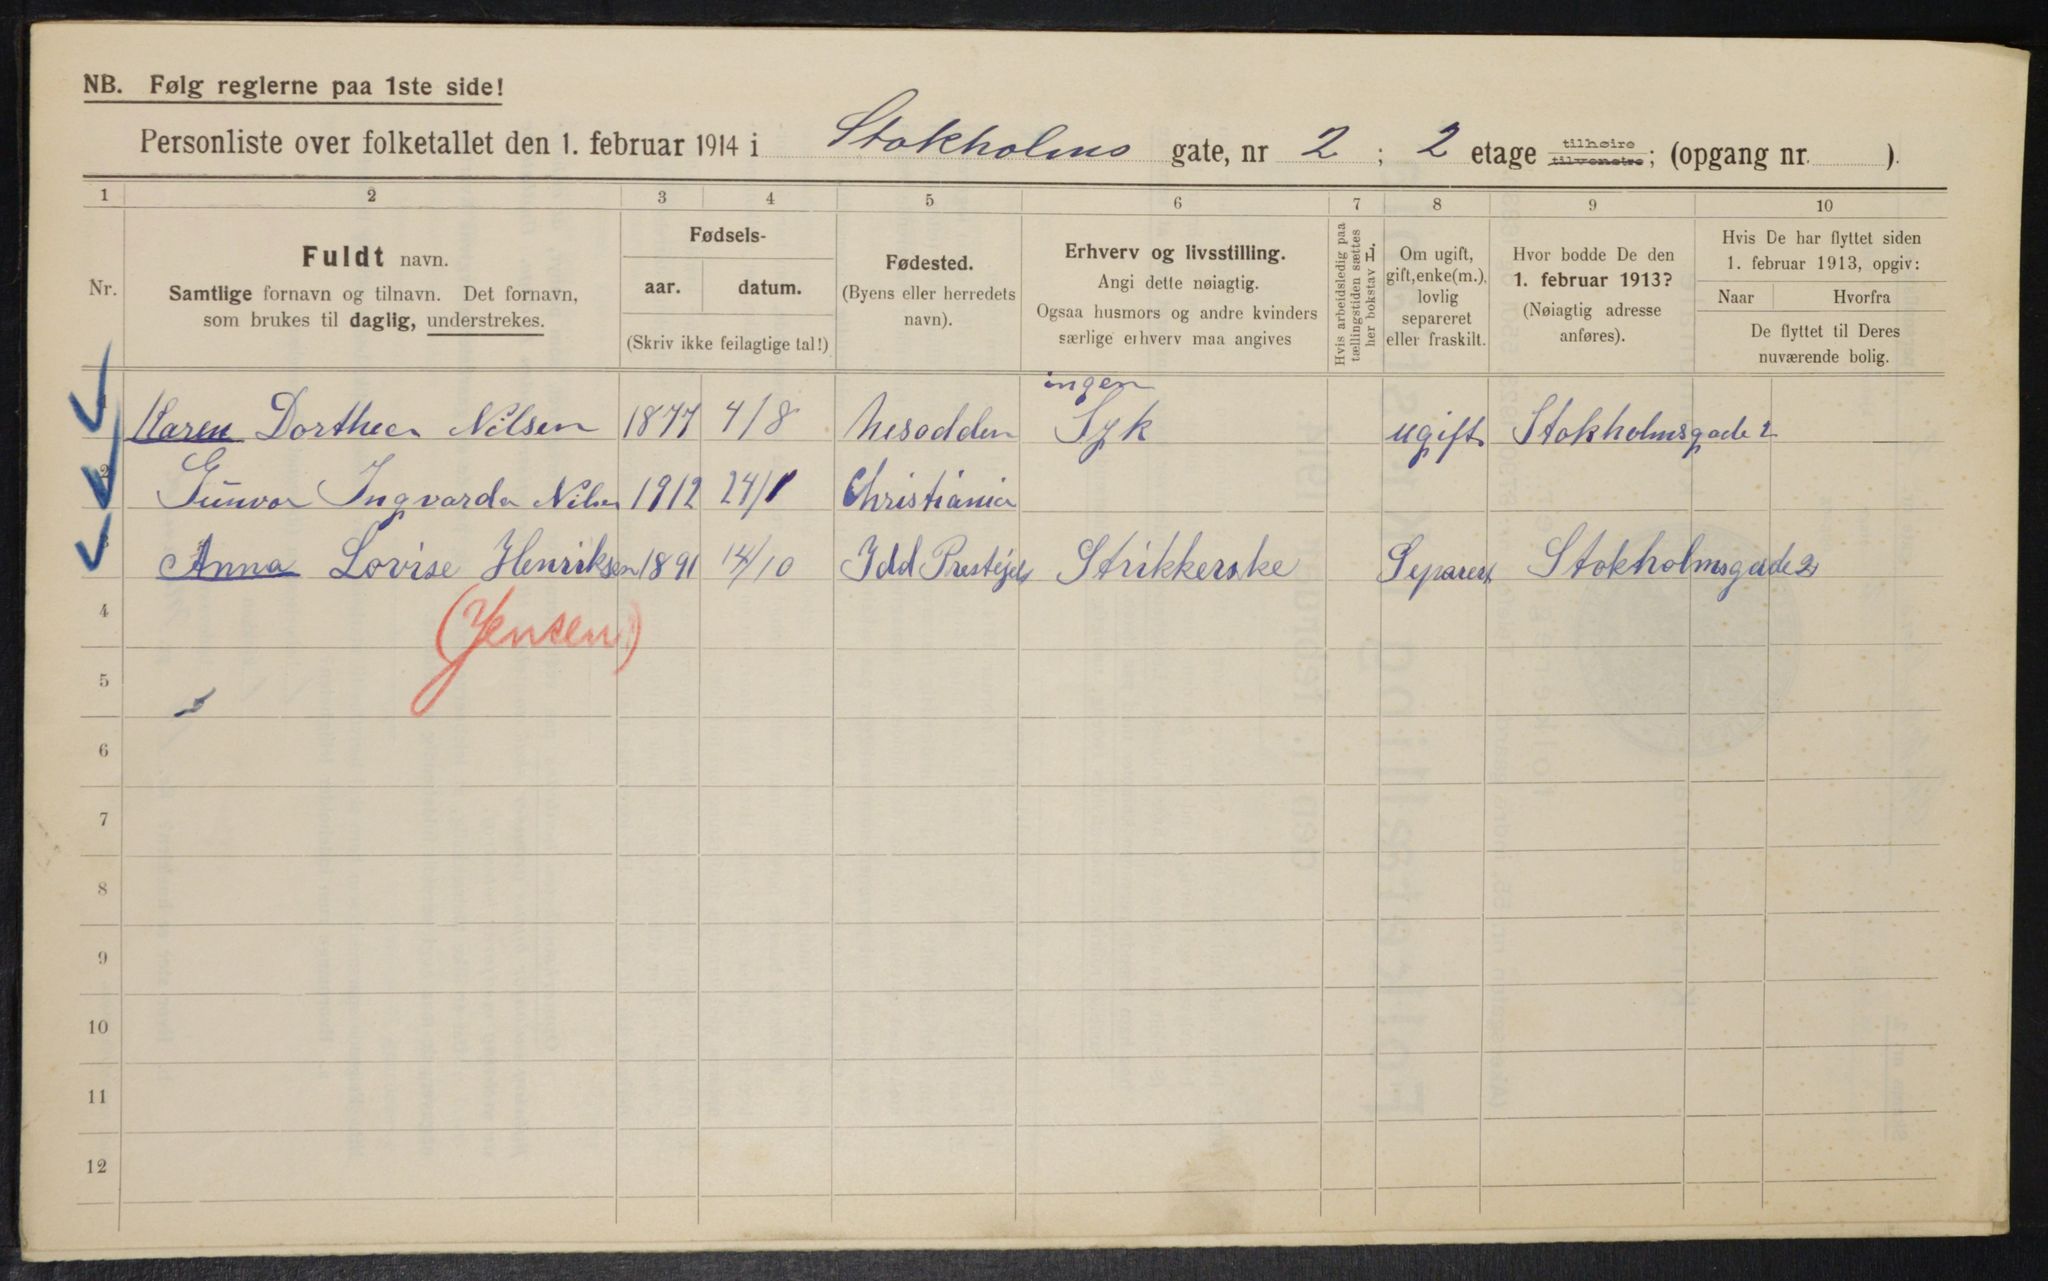 NB. Følg reglerne paa 1ste side!
Personliste over folketallet den 1. februar 1914 i Stokholms gate, nr 2 ; 2 etage tilhøire tilvenstre; (opgang nr. ).
1 2 3 4 5 6 7 8 9 10
Nr.
Fuldt navn.
Samtlige fornavn og tilnavn. Det fornavn,
som brukes til daglig, understrekes.
Fødsels-
aar. datum.
(Skriv ikke feilagtige tal!)
Fødested.
(Byens eller herredets
navn).
Erhverv og livsstilling.
Angi dette nøiagtig.
Ogsaa husmors og andre kvinders
særlige erhverv maa angives
Hvis arbeidsledig paa
tællingstiden sættes
her bokstav L.
Om ugift,
gift, enke(m.),
lovlig
separeret
eller fraskilt.
Hvor bodde De den
1. februar 1913?
(Nøiagtig adresse
anføres).
Hvis De har flyttet siden
1. februar 1913, opgiv:
Naar Hvorfra
De flyttet til Deres
nuværende bolig.
ingen
Karen Dorthea Nilsen 1877 4/8 Nesodden Syk ugift Stokholmsgade 2
2 Gunvor Ingvarda Nilsen 1912 24/1 Christiania
3 Anna Lovise Henriksen 1891 14/10 Idd Prestejeld Strikkerske Separert Stokholmsgade 2
4 (Jensen)
5
6
7
8
9
10
11
12